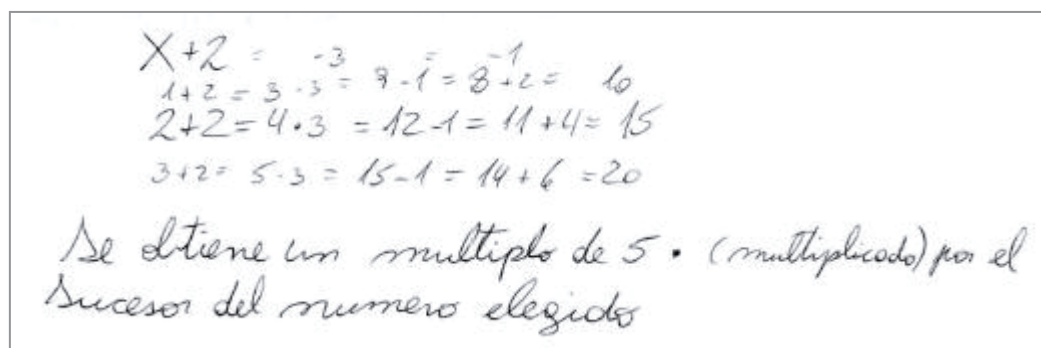 X+2 = ·3 = -1
1+2 = 3·3 = 9-1 = 8+2 = 10
2+2=4·3 = 12-1 = 11+4= 15
3+2= 5·3 = 15-1 = 14+6 =20
Se obtiene un multiplo de 5 · (multiplicado) por el
Sucesor del numero elegido